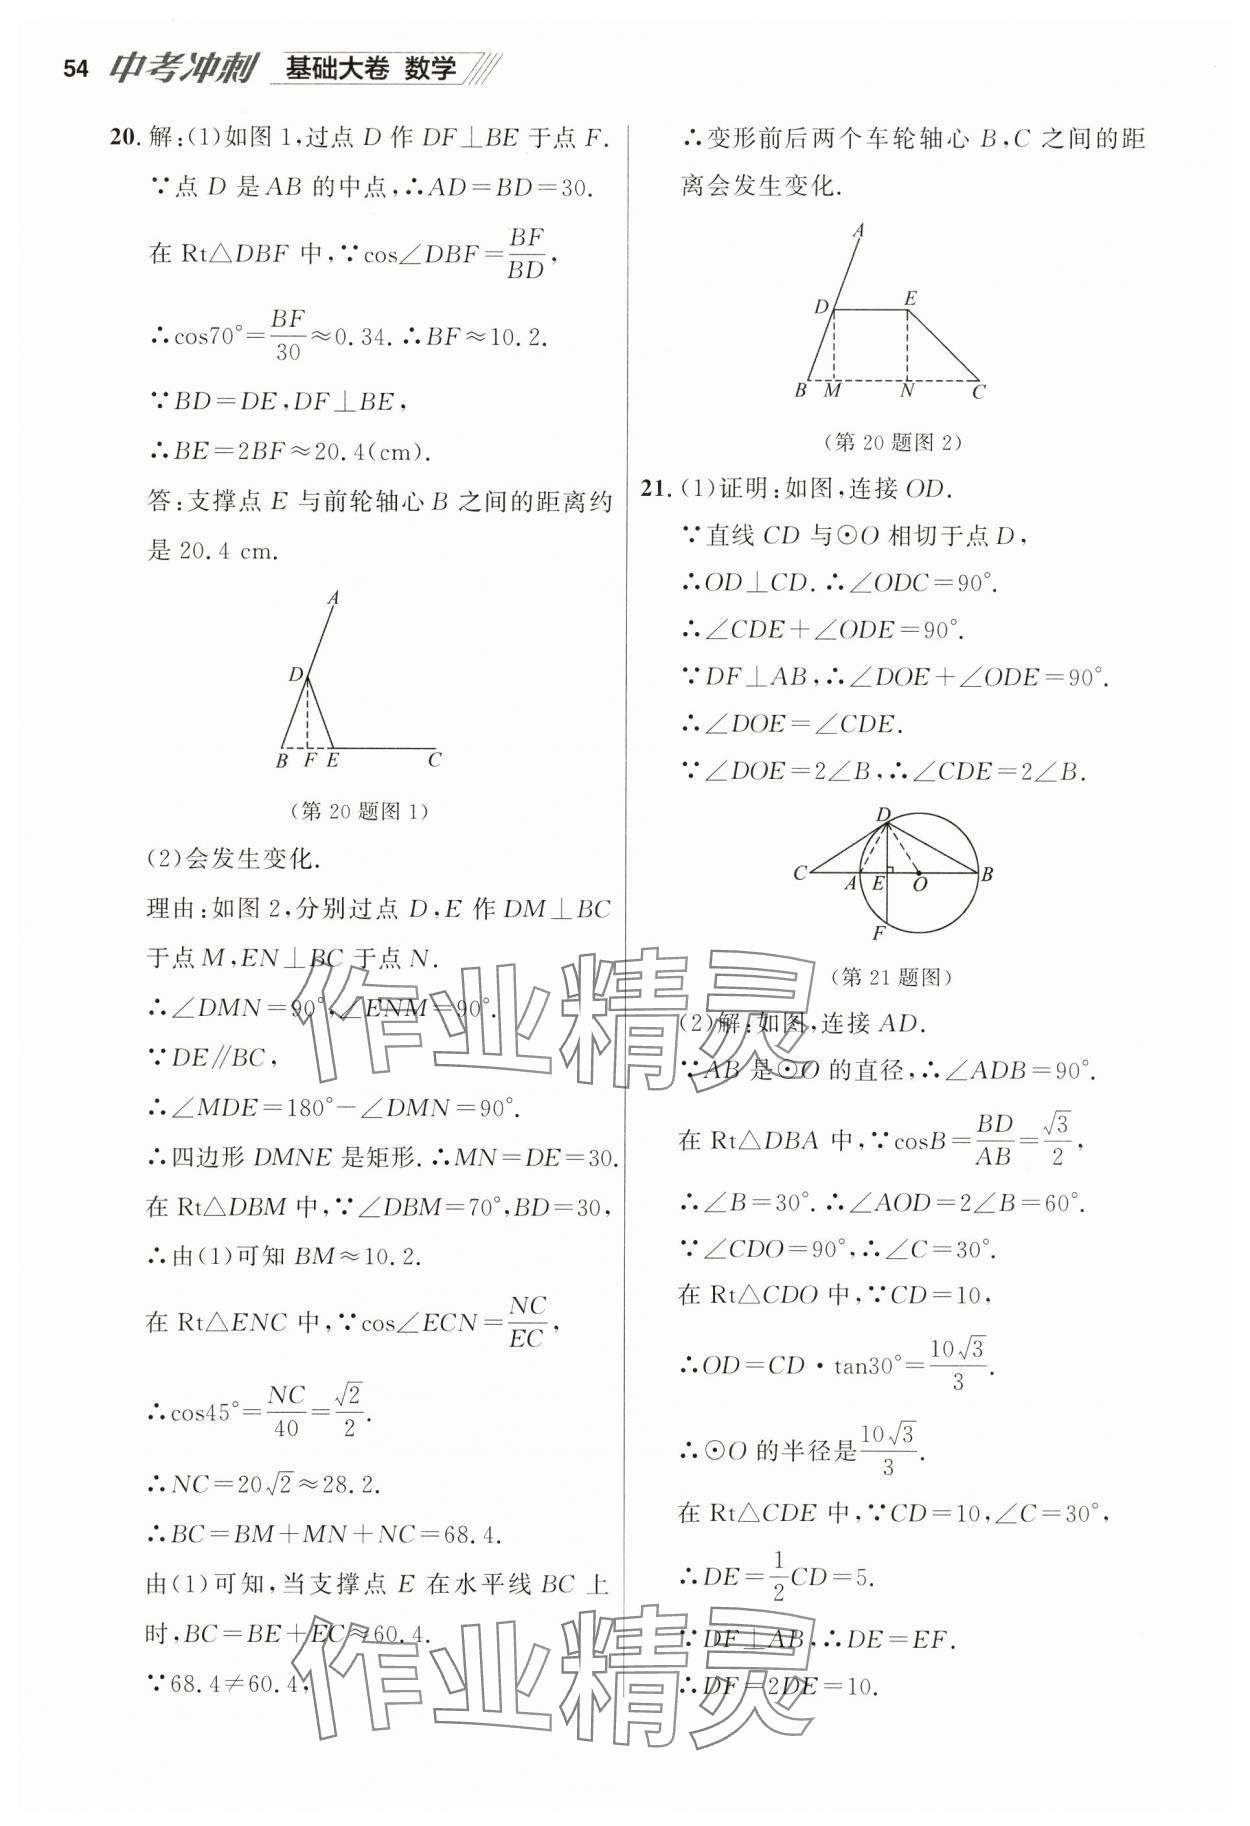 54 中考冲刺 基础大卷 数学
20. 解:(1)如图1,过点 D 作 DF⊥BE 于点 F.
∵点 D 是AB 的中点,∴AD=BD=30.
在 Rt△DBF 中,∵cos∠DBF=BF/BD,
∴cos70°=BF/30≈0.34. ∴BF≈10.2.
∵BD=DE,DF⊥BE,
∴BE=2BF≈20.4(cm).
答:支撑点 E 与前轮轴心 B 之间的距离约
是 20.4 cm.
A
D
B F E C
(第 20 题图 1)
(2)会发生变化.
理由:如图 2,分别过点 D,E 作 DM⊥BC
于点 M,EN⊥BC 于点 N.
∴∠DMN=90°,∠ENM=90°.
∵DE∥BC,
∴∠MDE=180°-∠DMN=90°.
∴四边形 DMNE 是矩形. ∴MN=DE=30.
在 Rt△DBM 中,∵∠DBM=70°,BD=30,
∴由(1)可知 BM≈10.2.
在 Rt△ENC 中,∵cos∠ECN=NC/EC,
∴cos45°=NC/40=√2/2.
∴NC=20√2≈28.2.
∴BC=BM+MN+NC=68.4.
由(1)可知,当支撑点 E 在水平线 BC 上
时,BC=BE+EC≈60.4.
∵68.4≠60.4,
∴变形前后两个车轮轴心 B,C 之间的距
离会发生变化.
A
D E
B M N C
(第 20 题图 2)
21. (1)证明:如图,连接 OD.
∵直线 CD 与⊙O 相切于点 D,
∴OD⊥CD. ∴∠ODC=90°.
∴∠CDE+∠ODE=90°.
∵DF⊥AB,∴∠DOE+∠ODE=90°.
∴∠DOE=∠CDE.
∵∠DOE=2∠B,∴∠CDE=2∠B.
D
C A E O B
F
(第 21 题图)
(2)解:如图,连接 AD.
∵AB 是⊙O 的直径,∴∠ADB=90°.
在 Rt△DBA 中,∵cosB=BD/AB=√3/2,
∴∠B=30°. ∴∠AOD=2∠B=60°.
∵∠CDO=90°,∴∠C=30°.
在 Rt△CDO 中,∵CD=10,
∴OD=CD·tan30°=10√3/3.
∴⊙O 的半径是10√3/3.
在 Rt△CDE 中,∵CD=10,∠C=30°,
∴DE=1/2CD=5.
∵DF⊥AB,∴DE=EF.
∴DF=2DE=10.
作业精灵
作业精灵